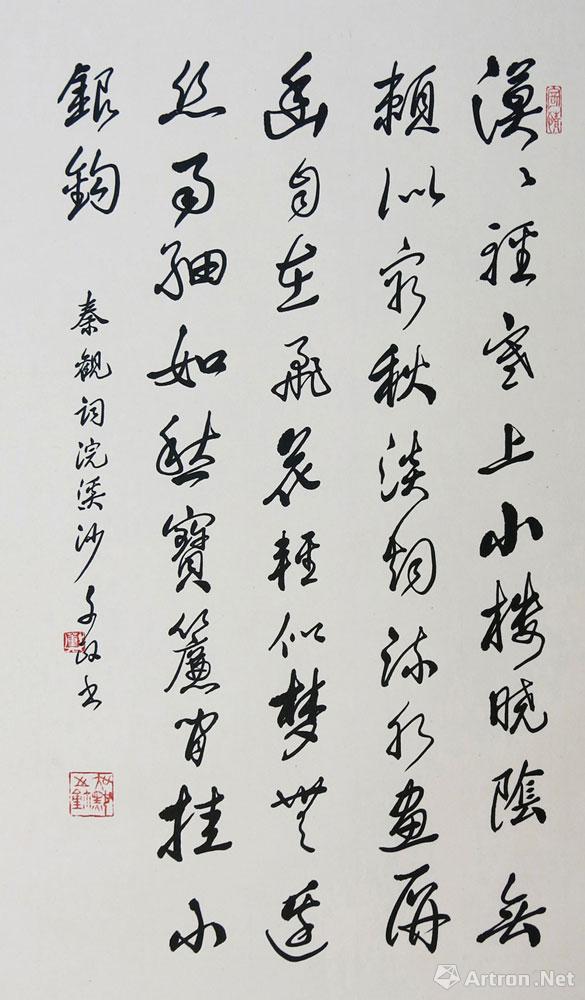 漠〻輕寒上小樓晓陰無
賴似窮秋淡烟流水畫屏
幽自在飛花輕似夢無邊
丝雨細如愁寶簾闲挂小
銀鈎
秦觀词浣溪沙 书
Artron.Net